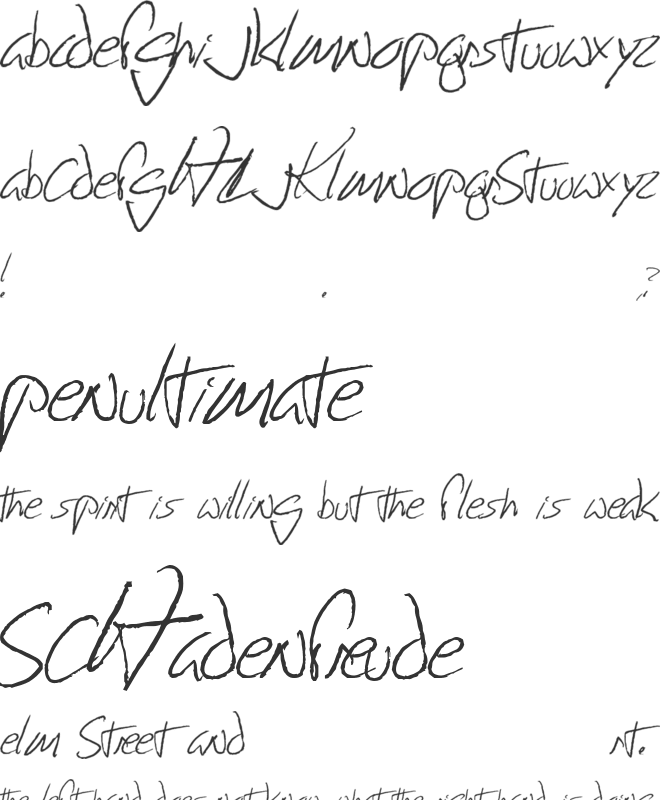 abcdefghijklmnopqrstuvwxyz
abCdefgHIJKlmnopqrStuvwxyz
! . ?
penultimate
the spirit is willing but the flesh is weak
SCHadenfreude
elm Street and rt.
the left hand does not know what the right hand is doing